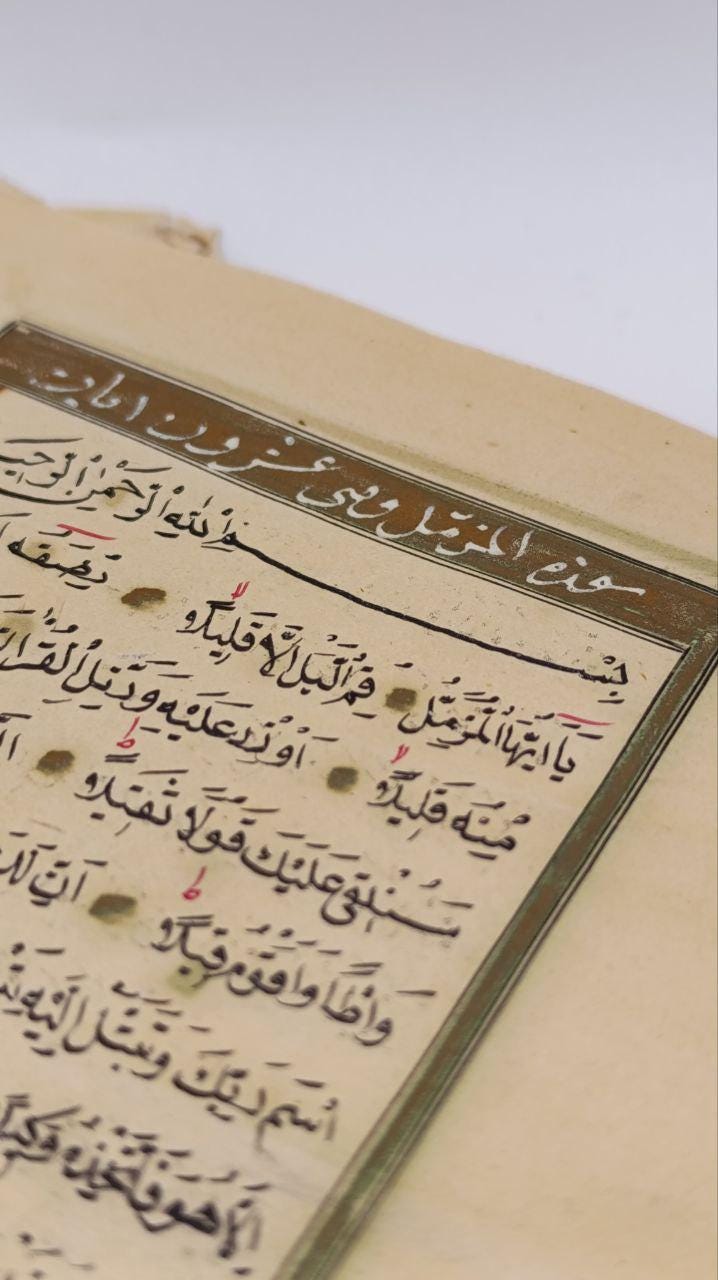 سورة المزمل وهى عشرون اىات
بِسْــــمِ اللّٰهِ الرَّحْمٰنِ الرَّحِيـ
يَآ اَيُّهَا الْمُزَّمِّلُ قُمِ الَّيْلَ اِلَّا قَلِيلًاۙ نِصْفَهٓ
مِنْهُ قَلِيلًاۙ اَوْ زِدْ عَلَيْهِ وَرَتِّلِ الْقُرْاٰنَ
سَنُلْقِى عَلَيْكَ قَوْلًا ثَقِيلًاۜ
وَطْـًٔا وَاَقْوَمُ قِيلًاۜ اِنَّ لَكَ
اسْمَ رَبِّكَ وَتَبَتَّلْ اِلَيْهِ
اِلَّا هُوَ فَاتَّخِذْهُ وَكِيلًا